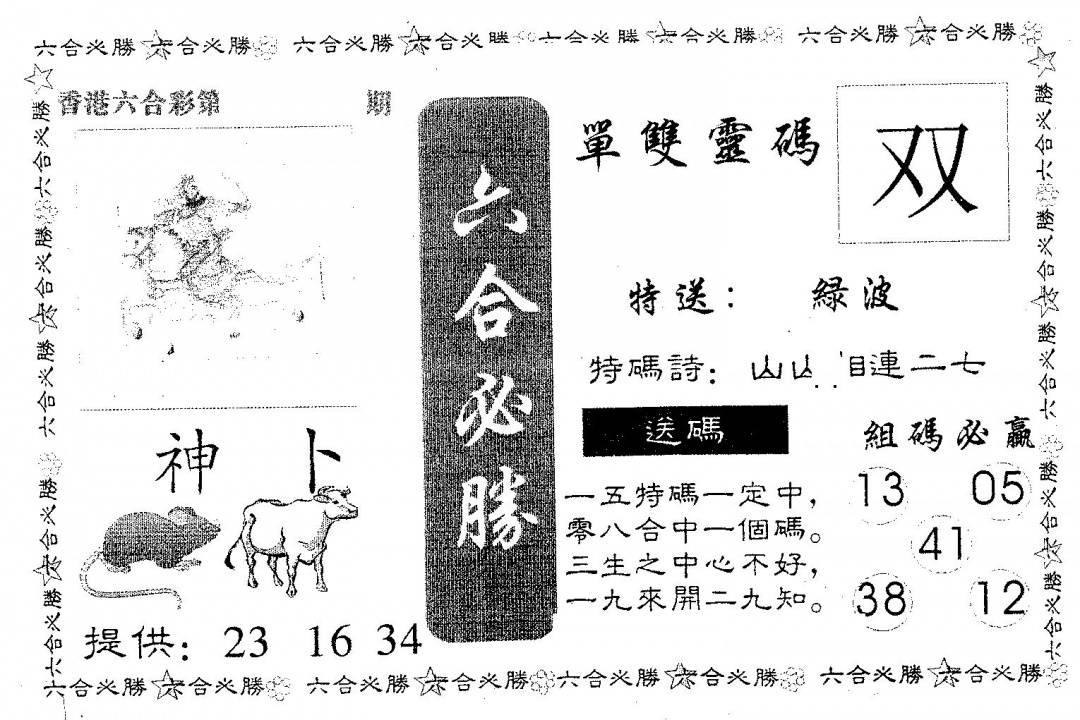 六合必勝 六合必勝 六合必勝 六合必勝 六合必勝 六合必勝 六合必勝 六合必勝
香港六合彩第 期
神卜
提供：23 16 34
六合必勝
單雙靈碼 双
特送：綠波
特碼詩：山山 相連二七
送碼
一五特碼一定中，
零八合中一個碼。
三生之中心不好，
一九來開二九知。
組碼必贏
13 05
41
38 12
六合必勝 六合必勝 六合必勝 六合必勝 六合必勝 六合必勝 六合必勝 六合必勝
六合必勝 六合必勝 六合必勝 六合必勝 六合必勝
六合必勝 六合必勝 六合必勝 六合必勝 六合必勝